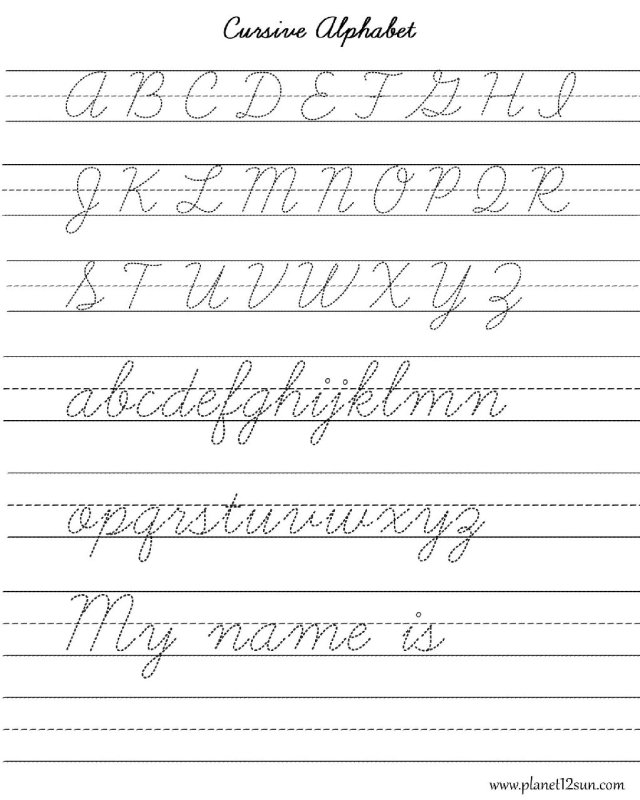 Cursive Alphabet
A B C D E F G H I
J K L M N O P Q R
S T U V W X Y Z
abcdefghijklmn
opqrstuvwxyz
My name is
www.planet12sun.com